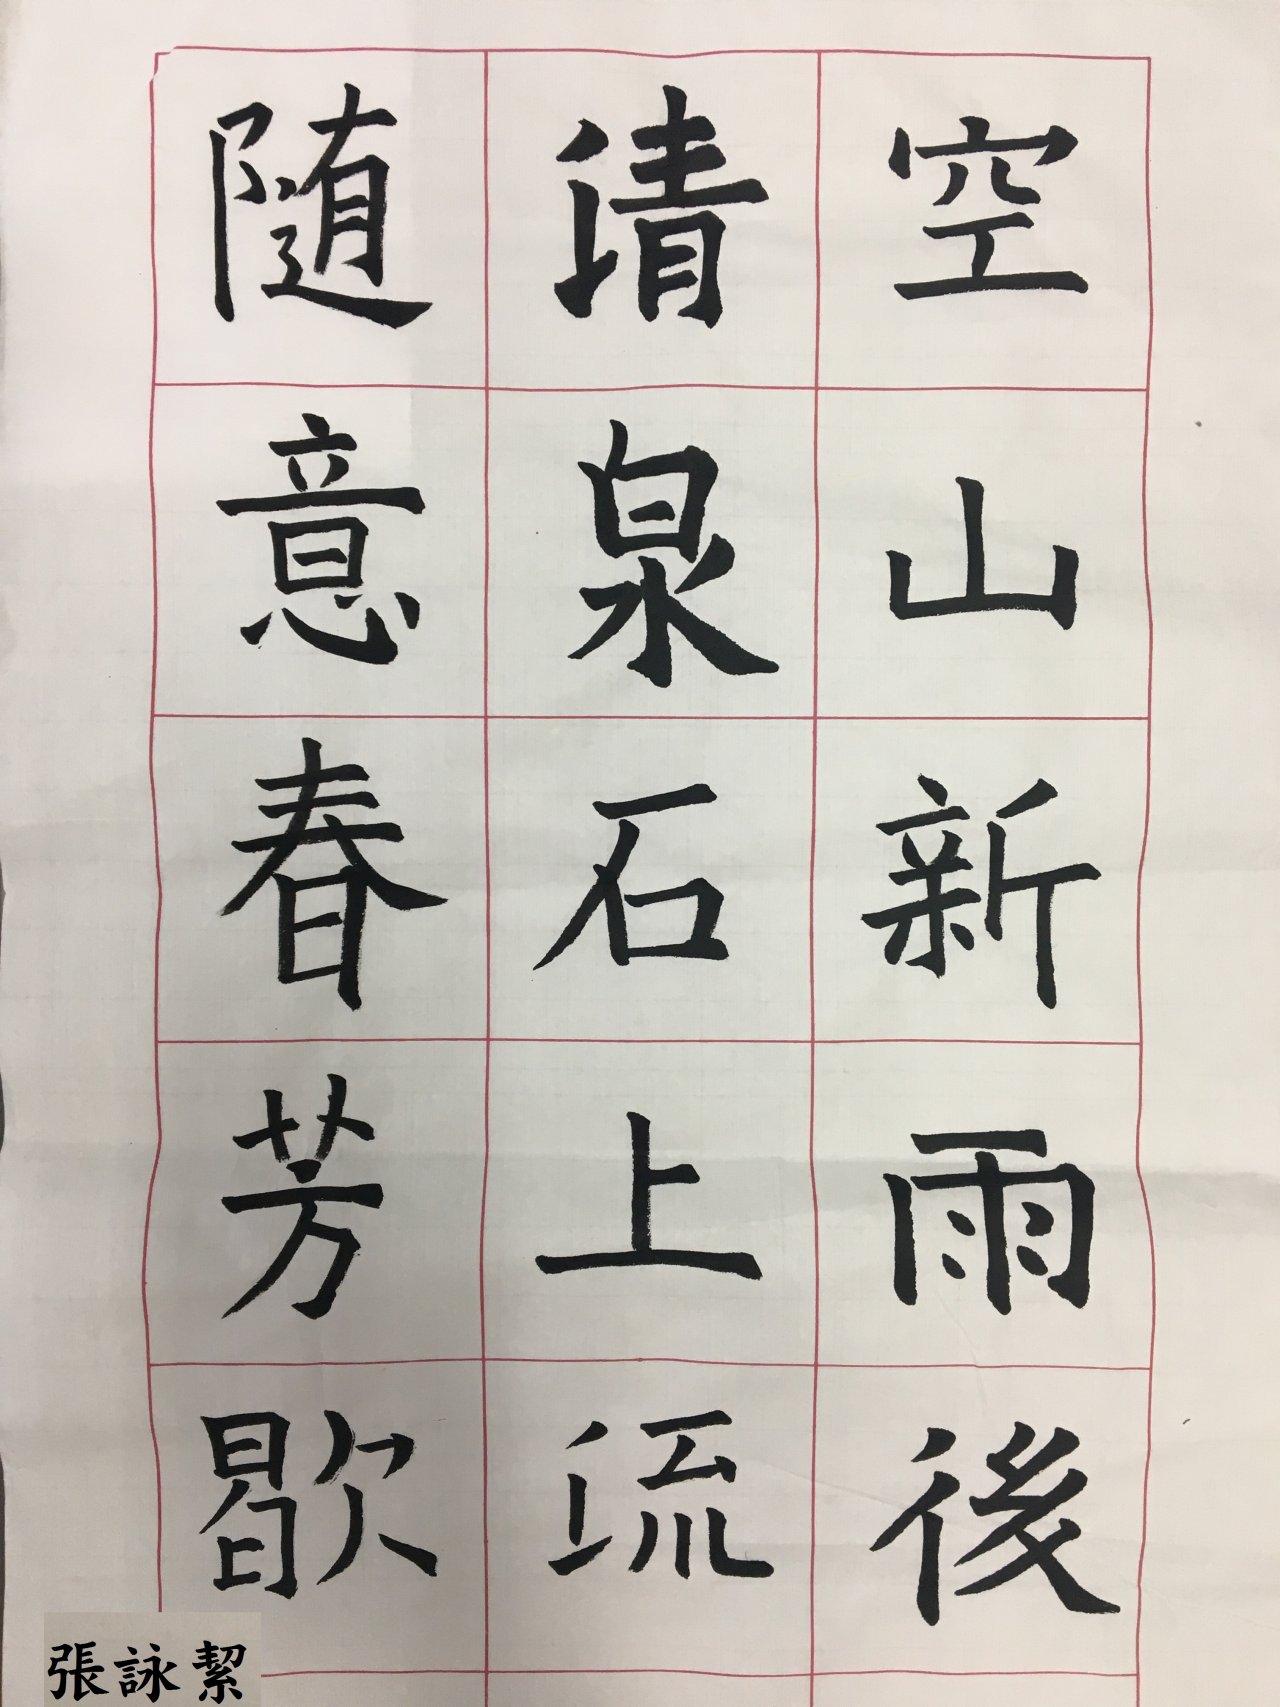 空山新雨後
清泉石上流
随意春芳歇
張詠絜